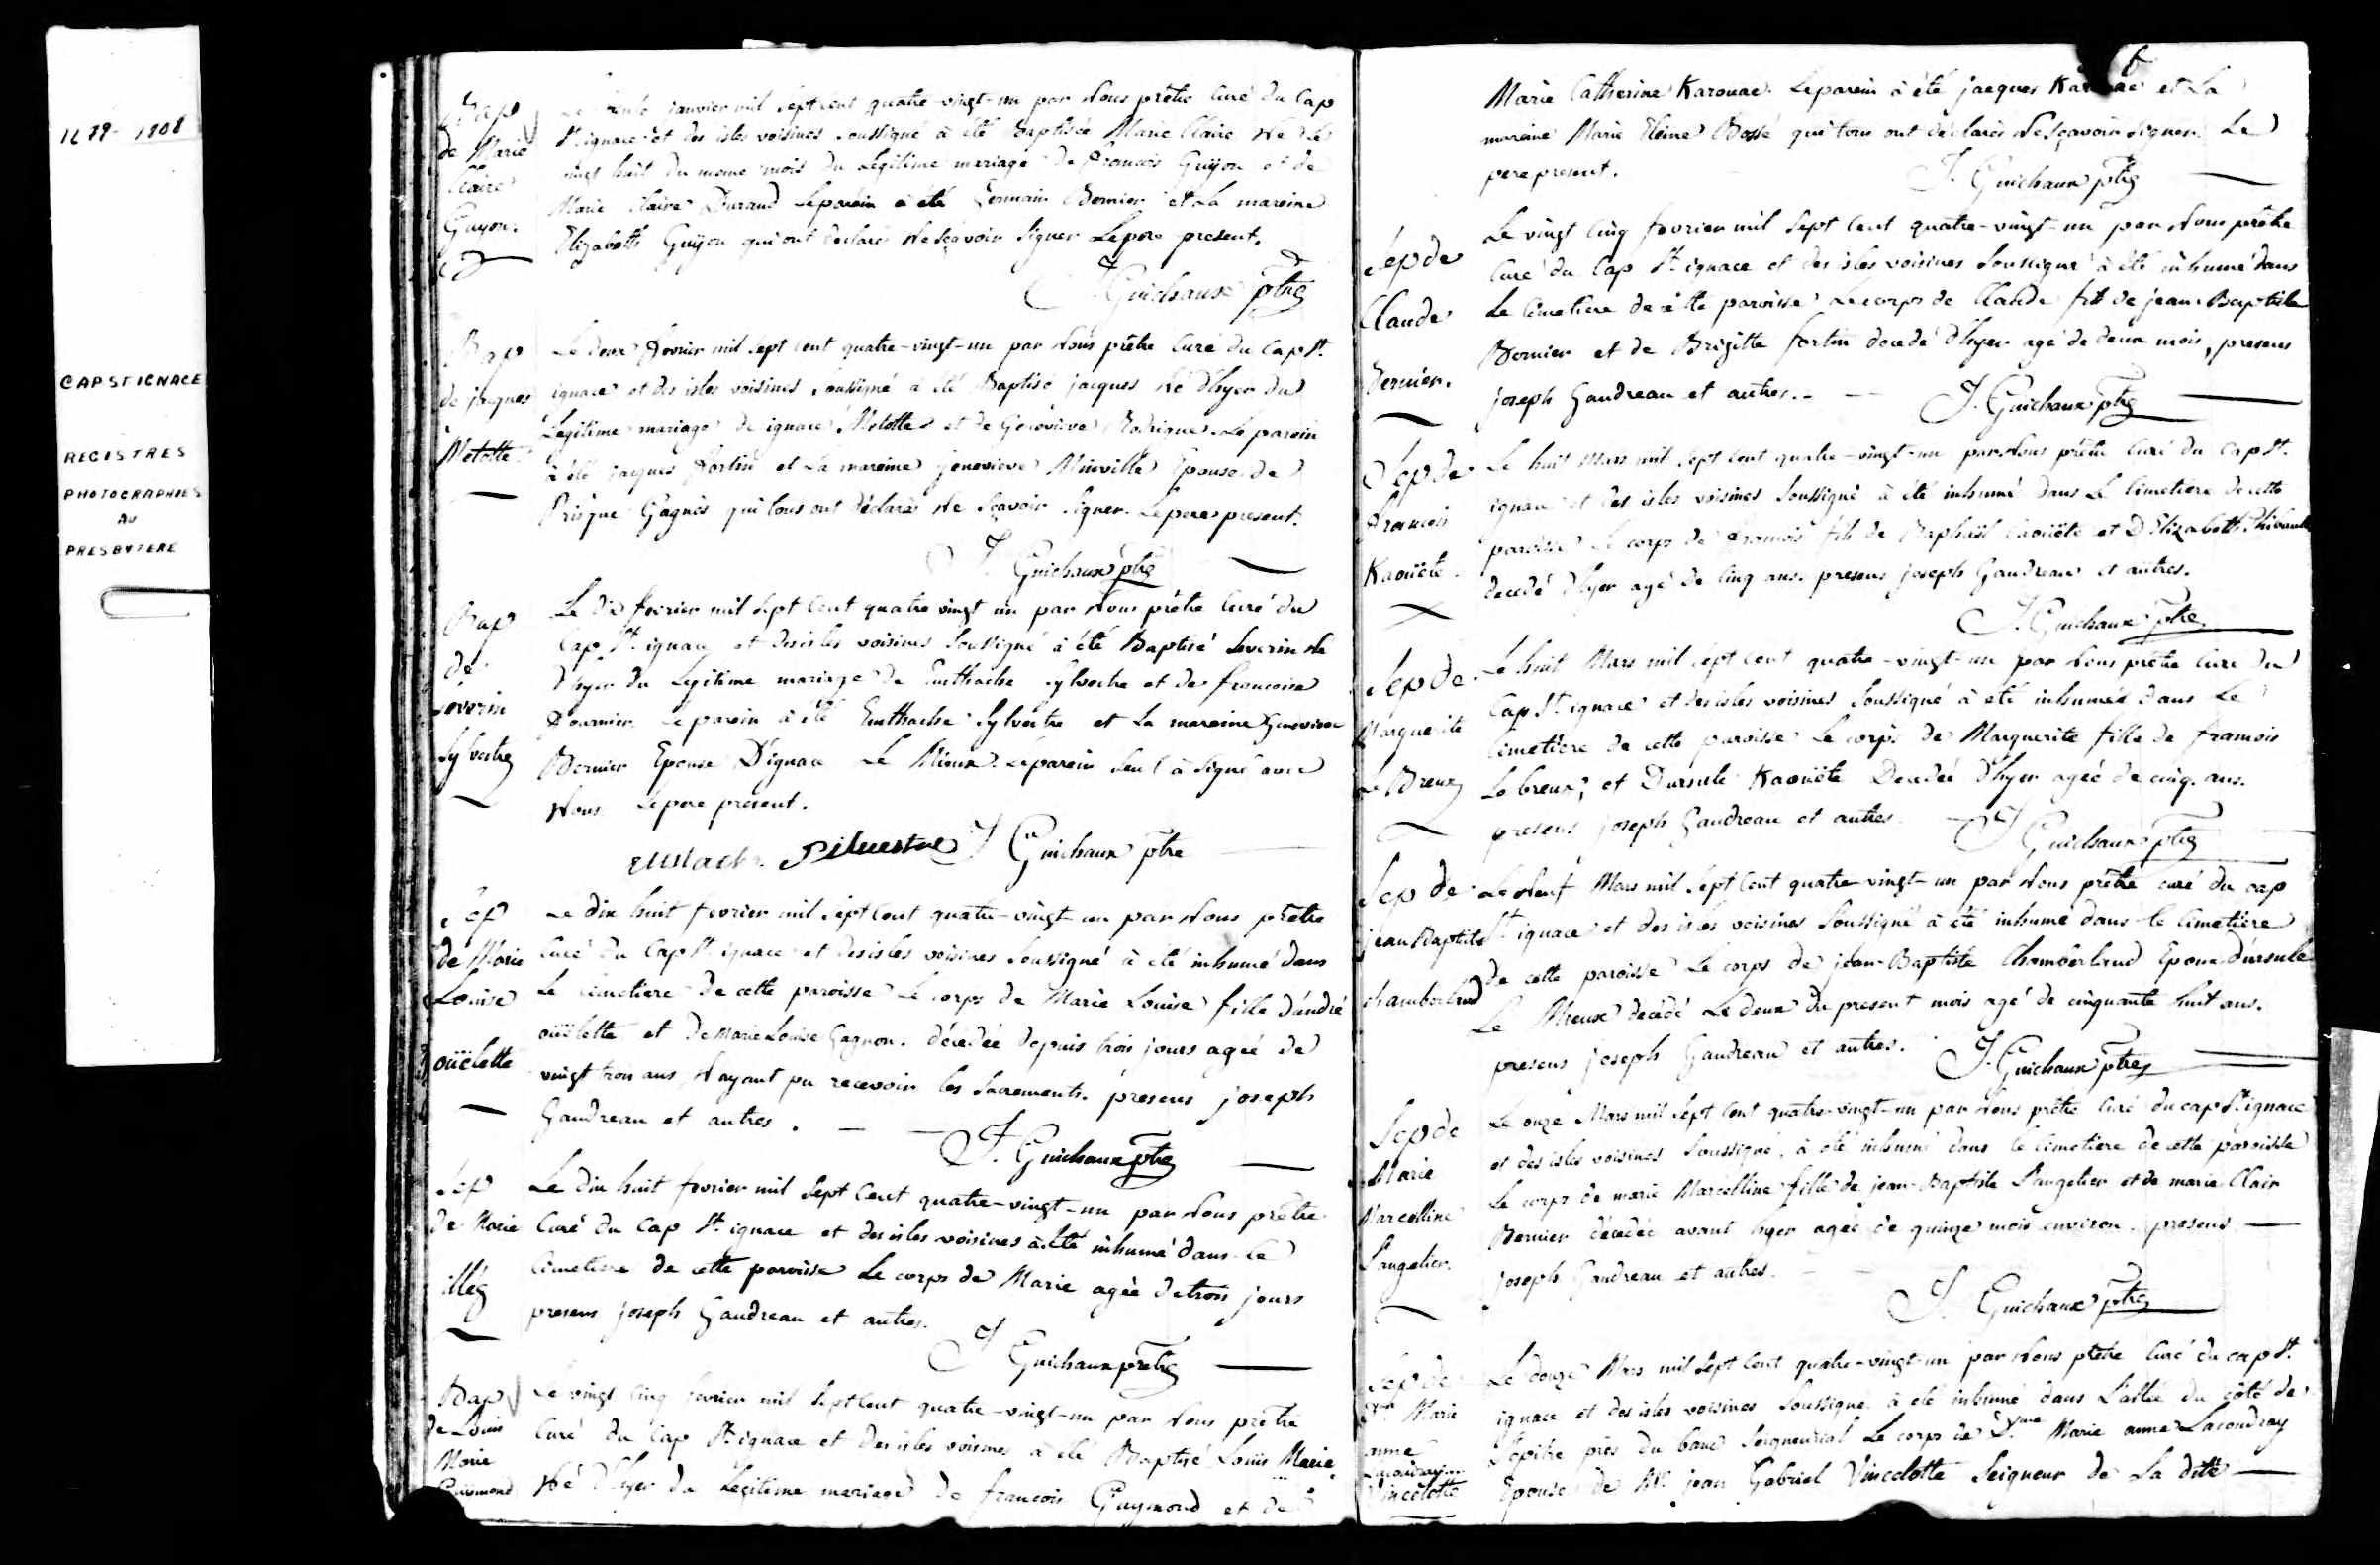 1679-1808
CAP ST IGNACE
REGISTRES
PHOTOGRAPHIES
AU
PRESBYTERE
Bap
de Marie
Claire
Guyon.
Le trente janvier mil sept cent quatre-vingt-un par Nous prêtre Curé du Cap
St. ignace et des isles voisines soussigné à été Baptisée Marie Claire Née le
vingt huit du meme mois du Legitime mariage de francois Guyon et de
Marie Claire Durand Le parein a été Germain Bernier et La mareine
Elizabeth Guyon qui ont déclaré Ne sçavoir signer Le pere present.
J. Guichaux ptre
Bap
de jacques
Metotte
Le deux fevrier mil sept cent quatre-vingt-un par Nous prêtre Curé du Cap St.
ignace et des isles voisines soussigné a été Baptisé jacques Né D'hyer du
Legitime mariage de ignace Metotte et de Genevieve Rodrigue. Le parein
à été jacques fortin et La mareine jenevieve Minville Epouse de
Prisque Gagnés qui tous ont déclaré Ne sçavoir signer. Le pere present.
J. Guichaux ptre
Bap
de
Severin
Sylvestre
Le dix fevrier mil sept Cent quatre vingt un par Nous prêtre Curé du
Cap St. ignace et des isles voisines soussigné à été Baptisé Severin Né
D'hyer du Legitime mariage de Eusthache Sylvestre et de francoise
Fournier. Le parein à été Eusthache Sylvestre et La mareine Genevieve
Bernier Epouse D'ignace Le Mieux. Le parein seul à signé avec
Nous Le pere présent.
eustach Silvestre J Guichaux ptre
Sep
de Marie
Louise
oüëlette
Le dix huit fevrier mil sept Cent quatre-vingt-un par Nous prêtre
Curé du Cap St. ignace et des isles voisines soussigné à été inhumé dans
Le Cimetiere de cette paroisse Le corps de Marie Louise fille d'andré
oüëlette et De Marie Louise Gagnon. décédée depuis trois jours ageé de
vingt trois ans N'ayant pu recevoir les Sacrements. presens joseph
Gaudreau et autres.
J. Guichaux ptre
Sep
de Marie
illég
Le dix huit fevrier mil sept Cent quatre-vingt-un par Nous prêtre
Curé du Cap St. ignace et des isles voisines à été inhumé dans le
Cimetiere de cette paroisse Le corps de Marie ageé de trois jours
presens joseph Gaudreau et autres.
J Guichaux prêtre
Bap
de Louis
Marie
Guimond
Le vingt Cinq fevrier mil sept cent quatre-vingt-un par Nous prêtre
Curé du Cap St. ignace et des isles voisines a été Baptisé Louis Marie
Né D'hyer du Legitime mariage de francois Guymond et de
6
Marie Catherine Karouac. Le parein à été jacques Karouac et La
mareine Marie Eleine Bossé qui tous ont declarés Ne sçavoir signer. Le
pere present.
J. Guichaux ptre
Sep de
Claude
Bernier.
Le vingt Cinq fevrier mil sept Cent quatre-vingt-un par Nous prêtre
Curé du Cap St. ignace et des isles voisines soussigné à été inhumé dans
Le Cimetiere de cette paroisse Le corps de Claude fils de jean-Baptiste
Bernier et de Brigitte fortin decedé D'hyer agé de deux mois, presens
joseph Gaudreau et autres.
J. Guichaux ptre
Sep de
francois
Kaoüete.
Le huit Mars mil sept Cent quatre-vingt-un par Nous prêtre Curé du Cap St.
ignace et des isles voisines soussigné à été inhumé dans Le Cimetiere de cette
paroisse Le corps de francois fils de Raphaël Caoüete et D'Elizabeth Thibault
decedé D'hyer agé de Cinq ans. presens joseph Gaudreau et autres.
J. Guichaux ptre
Sep de
Marguerite
Le Breux
Le huit Mars mil sept cent quatre-vingt-un par Nous prêtre Curé du
Cap St. ignace et des isles voisines soussigné à été inhumée dans Le
Cimetiere de cette paroisse Le corps de Marguerite fille de francois
Lebreux, et D'ursule Kaoüete Decedeé D'hyer ageé de cinq ans.
presens joseph Gaudreau et autres.
J Guichaux ptre
Sep de
jean Baptiste
chamberland
Le Neuf Mars mil sept Cent quatre-vingt-un par Nous prêtre curé du cap
St. ignace et des isles voisines soussigné à été inhumé dans le Cimetiere
de cette paroisse Le corps de jean-Baptiste Chamberland Epoux D'ursule
Le Mieux décédé Le deux du present mois agé de cinquante huit ans.
presens joseph Gaudreau et autres.
J. Guichaux ptre
Sep de
Marie
Marcelline
L'angelier.
Le onze Mars mil sept Cent quatre-vingt-un par Nous prêtre Curé du cap St. ignace
et des isles voisines soussigné, à été inhumé dans le Cimetiere de cette paroisse
Le corps de marie Marcelline fille de jean-Baptiste L'angelier et de marie Clair
Bernier décedée avant hyer ageé de quinze mois environ. presens
joseph Gaudreau et autres.
J. Guichaux ptre
Sep de
Marie
anne
Lacoudray
Vincelotte
Le douze Mars mil sept Cent quatre-vingt-un par Nous prêtre Curé du cap St.
ignace et des isles voisines soussigné à été inhumé dans L'allée du côté de
L'epitre près du banc seigneurial Le corps de Dme Marie anne Lacoudray
Epouse de Mr. jean Gabriel Vincelotte Seigneur de La dite